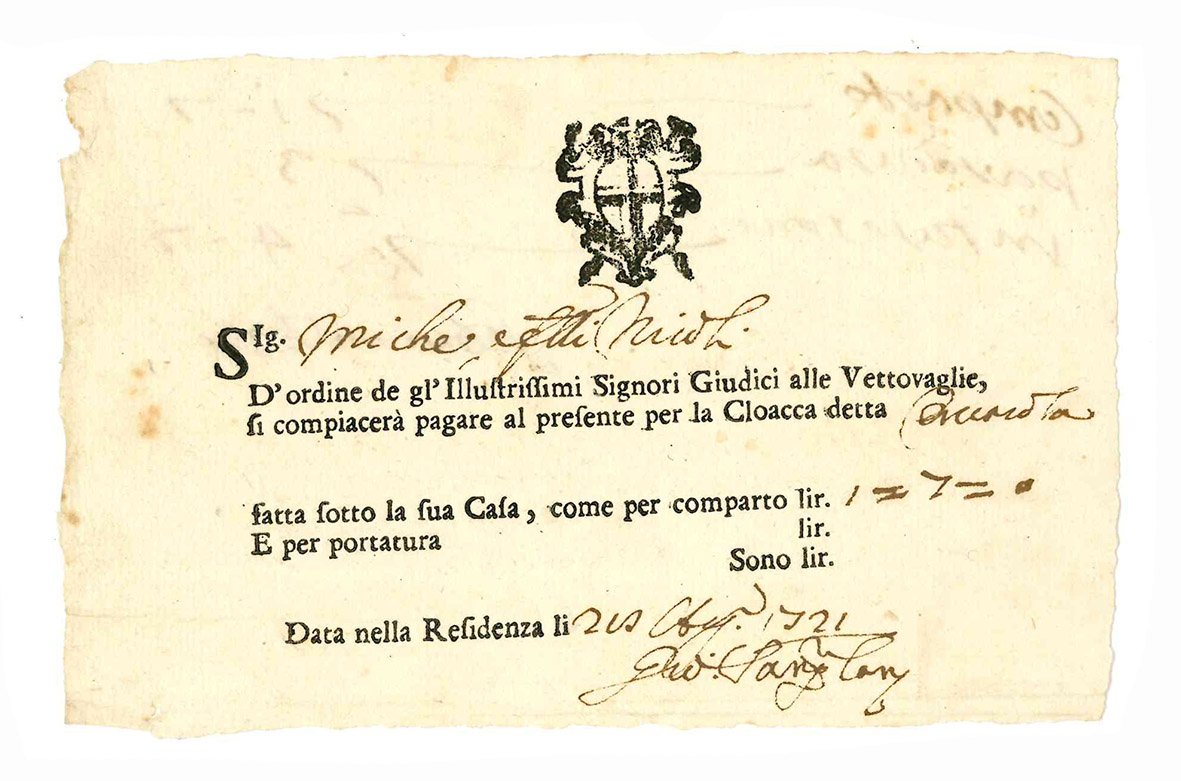 SIg. Miche
D' ordine de gl' Illuſtriſſimi Signori Giudici alle Vettovaglie,
ſi compiacerà pagare al preſente per la Cloacca detta
fatta ſotto la ſua Caſa, come per comparto lir. 1 = 7 = 0
E per portatura lir.
Sono lir.
Data nella Reſidenza li 1721